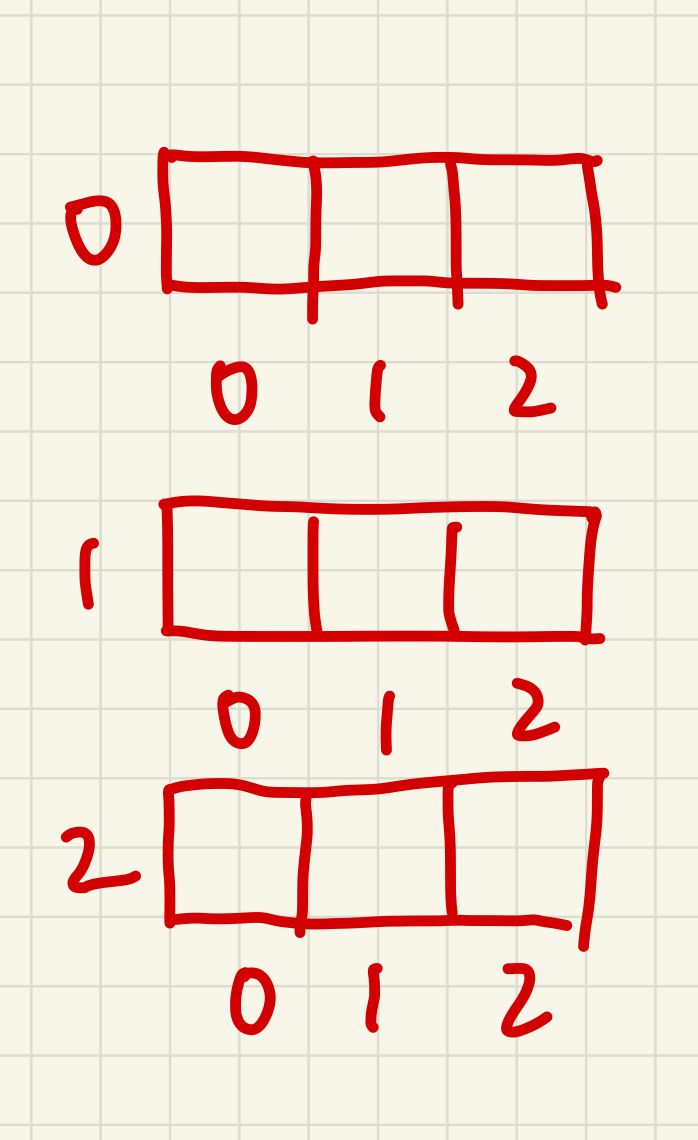 0
0 1 2
1
0 1 2
2
0 1 2